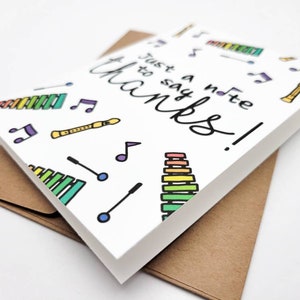 Just a note
to say
thanks!